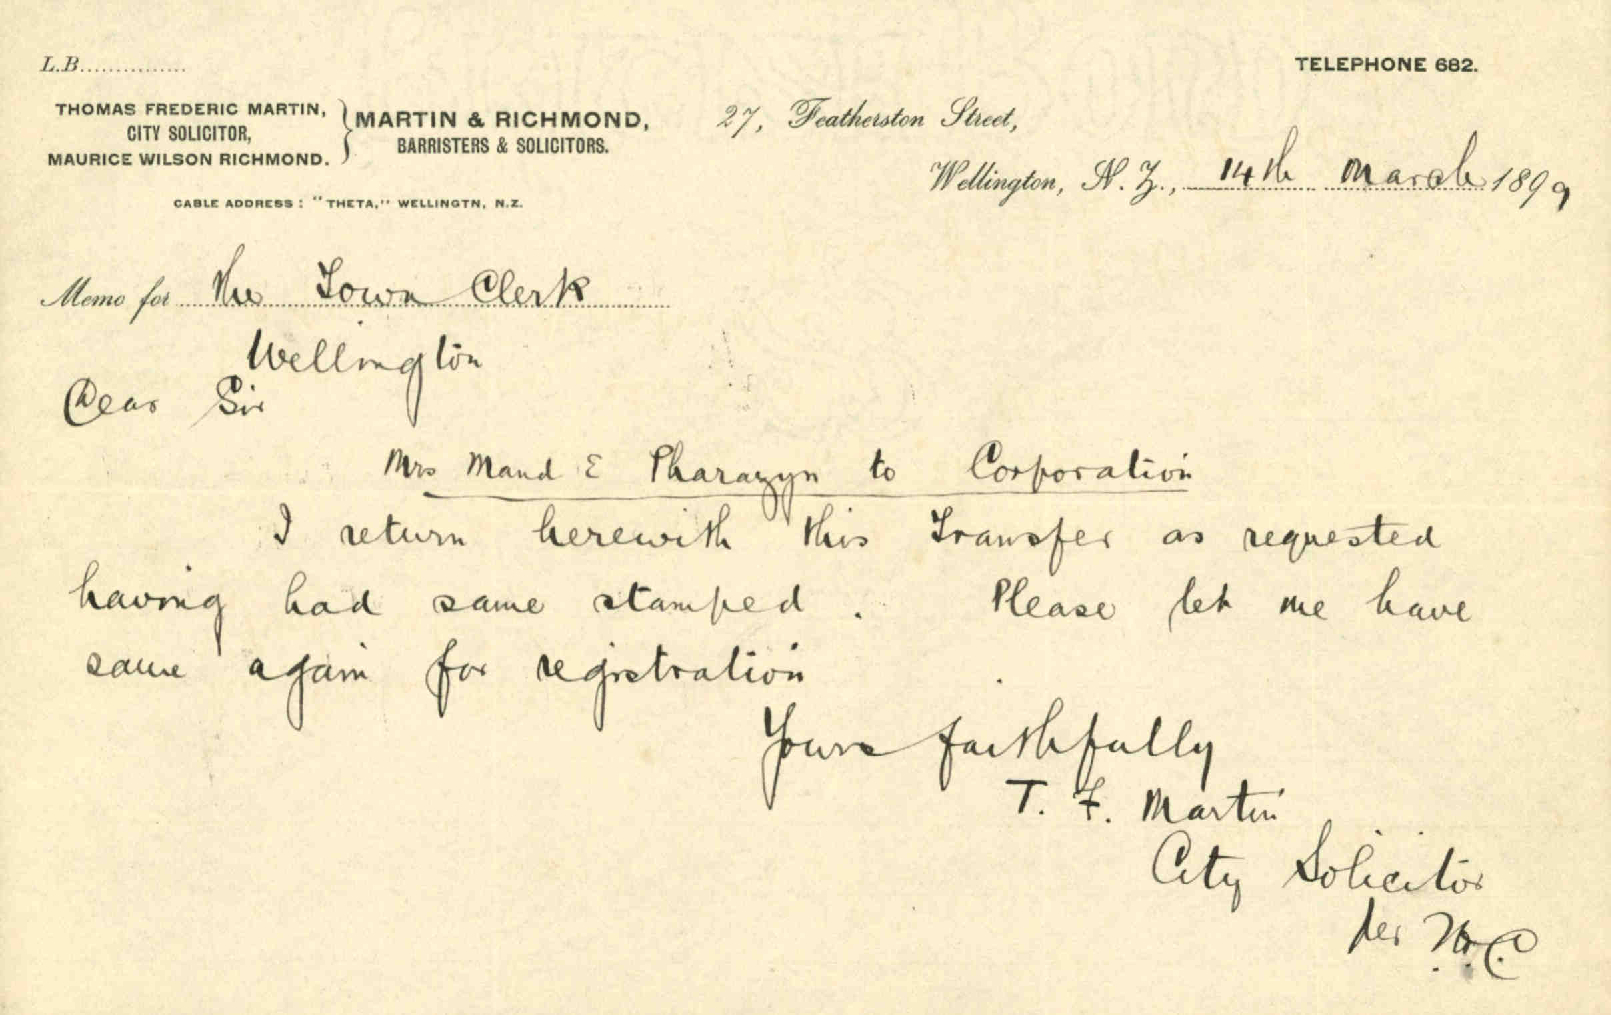 L.B...............
TELEPHONE 682.
THOMAS FREDERIC MARTIN,
CITY SOLICITOR,
MAURICE WILSON RICHMOND.
MARTIN & RICHMOND,
BARRISTERS & SOLICITORS.
27, Featherston Street,
Wellington, N.Z., 14th March 1899
CABLE ADDRESS: "THETA," WELLINGTN, N.Z.
Memo for the Town Clerk
Wellington
Dear Sir
Mrs Maud E Pharazyn to Corporation
I return herewith this Transfer as requested
having had same stamped. Please let me have
same again for registration
Yours faithfully
T. F. Martin
City Solicitor
per